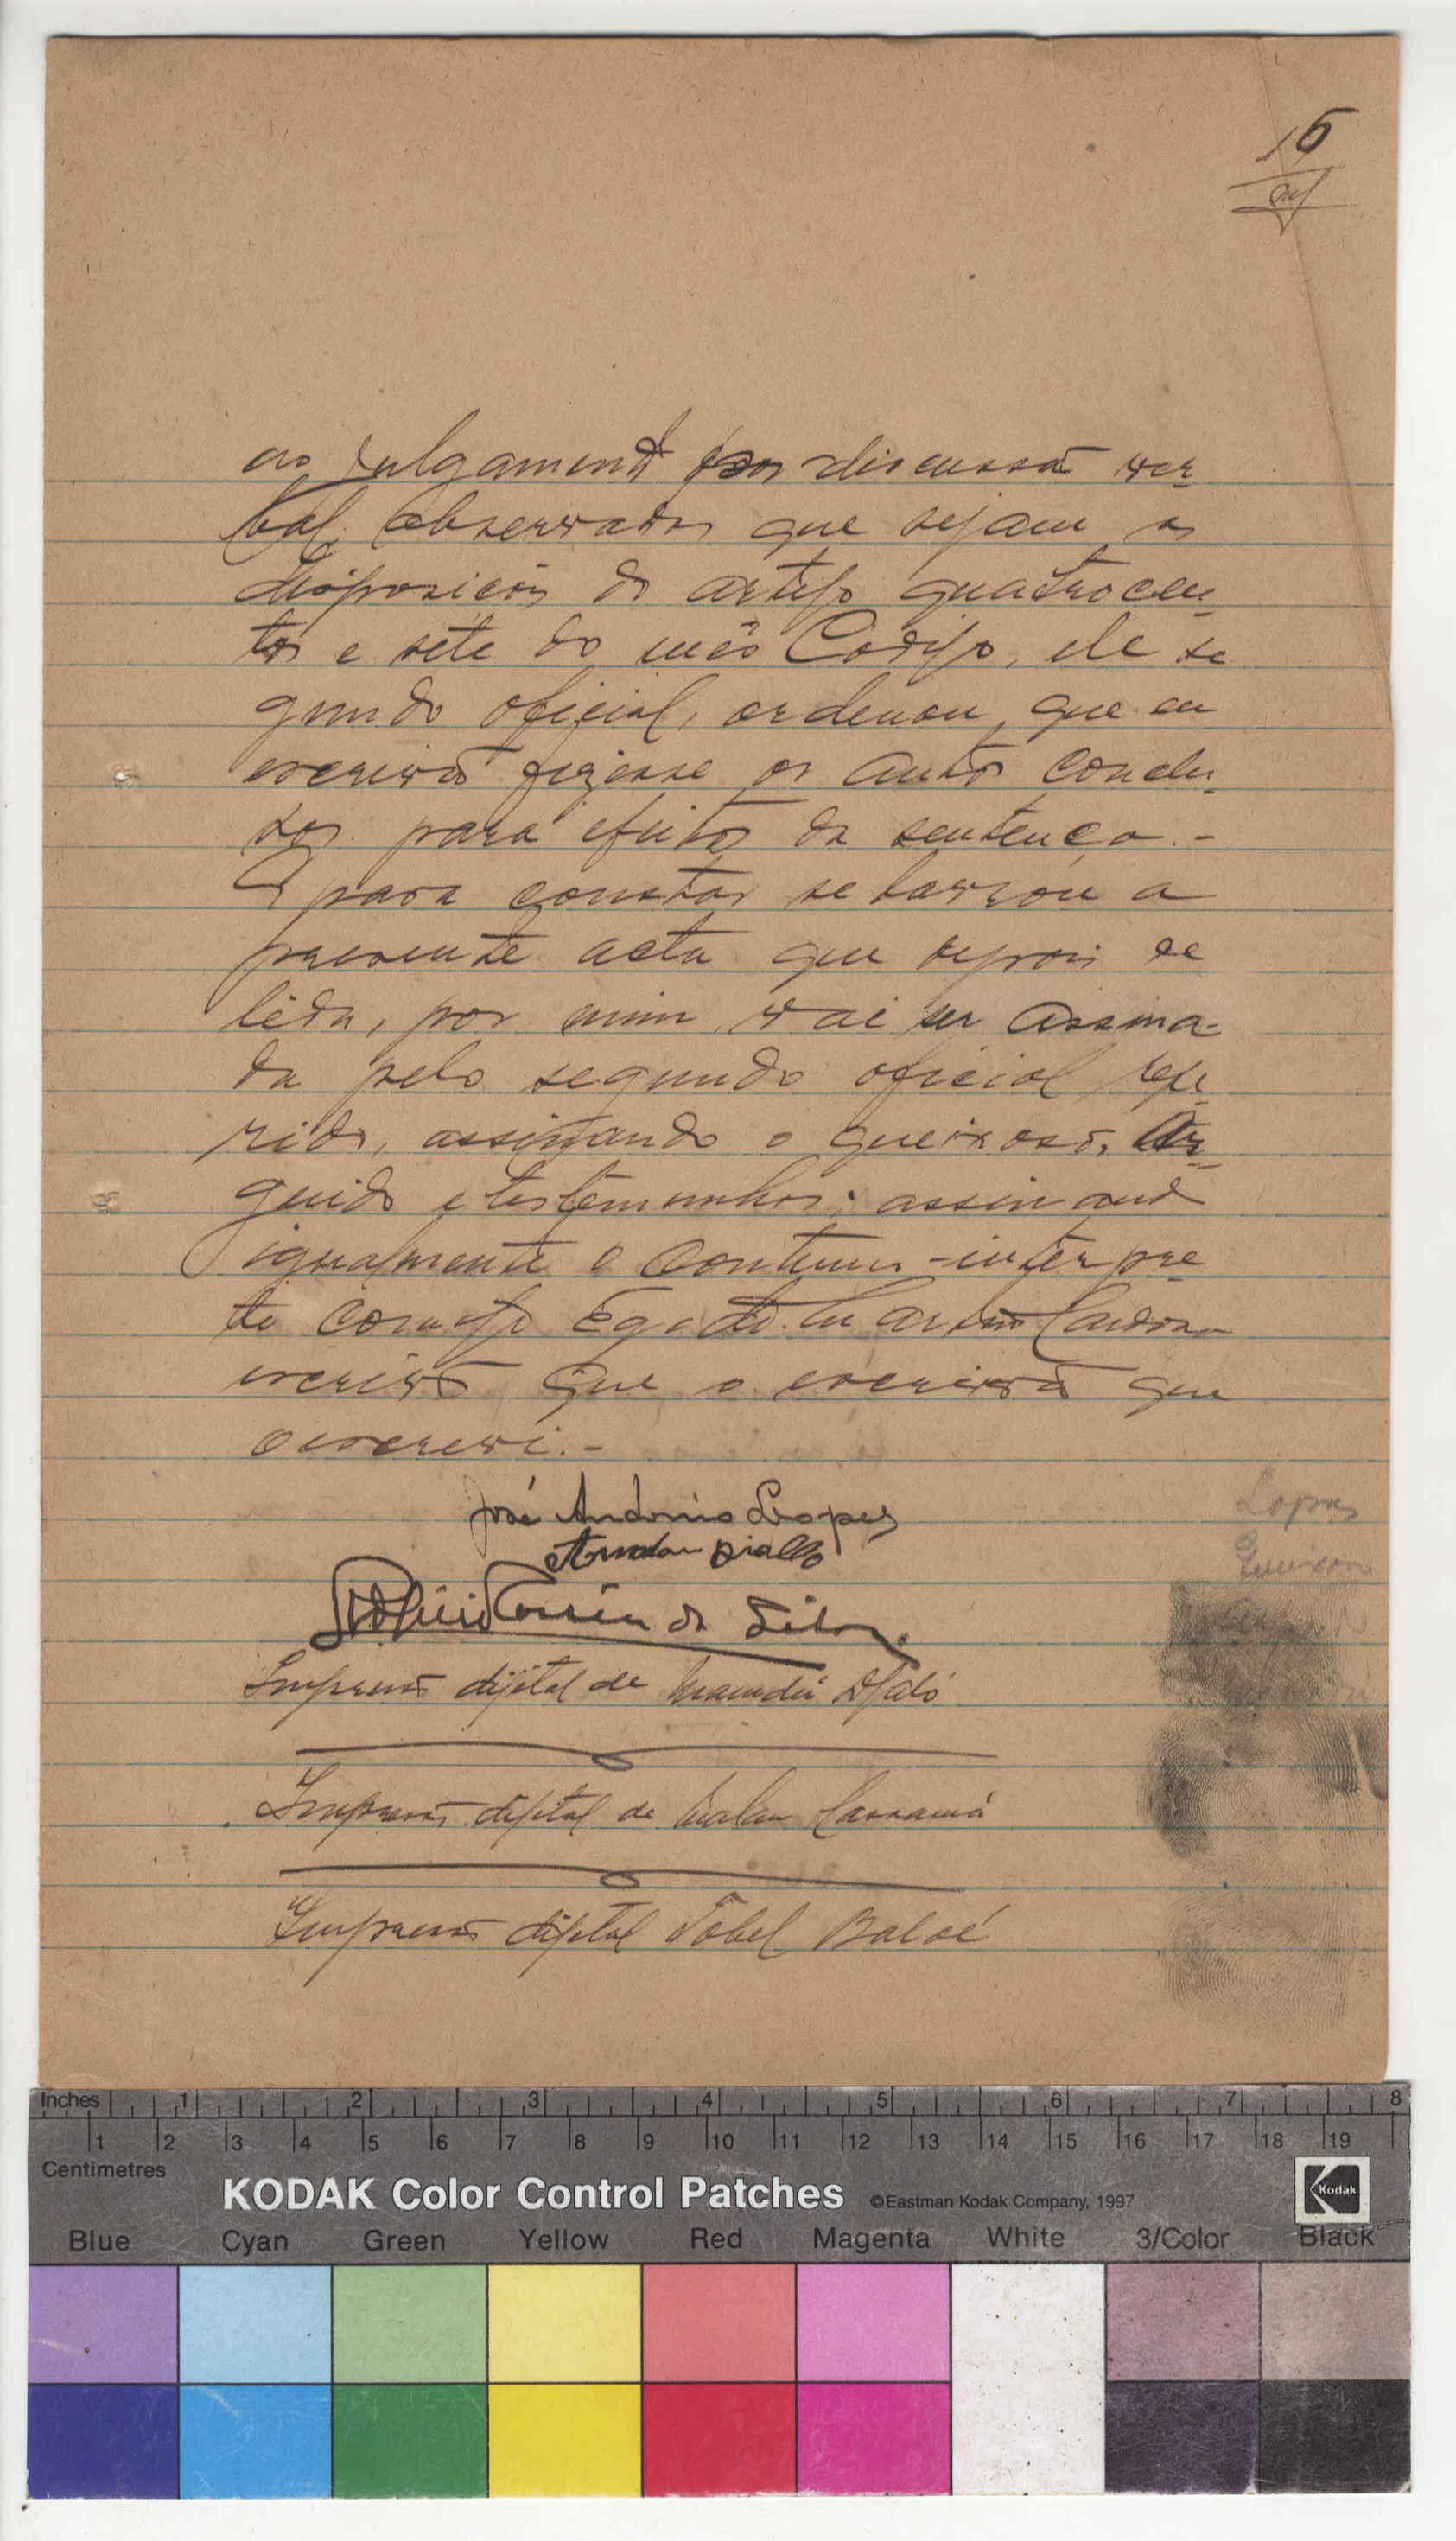 15
ao julgamento por discussão ver-
bal, observados que sejam as
disposicões do artigo quatrocen-
tos e sete do mês Codigo, ele se
gundo oficial, ordenou, que eu
escrivão fizesse os autos conclu-
sos para efeitos da sentença.-
E para constar se lavrou a
presente acta que depois de
lêda, por mim vai ser assina-
da pelo segundo oficial refe-
rido, assinando o queixoso, Ar-
guido e testemunhas; assinando
igualmente o interpre
te
escrivão que o escrivão que
o escrevi.-
José António Lopes
Lopes
Amadou Diallo
da Silva.
Impressão dijital de Mamadú Djaló
Impressão dijital de Malan Cassamá
Impressão dijital Tobel Baldé
Inches 1 2 3 4 5 6 7 8
1 2 3 4 5 6 7 8 9 10 11 12 13 14 15 16 17 18 19
Centimetres
KODAK Color Control Patches ©Eastman Kodak Company, 1997 Kodak
Blue Cyan Green Yellow Red Magenta White 3/Color Black